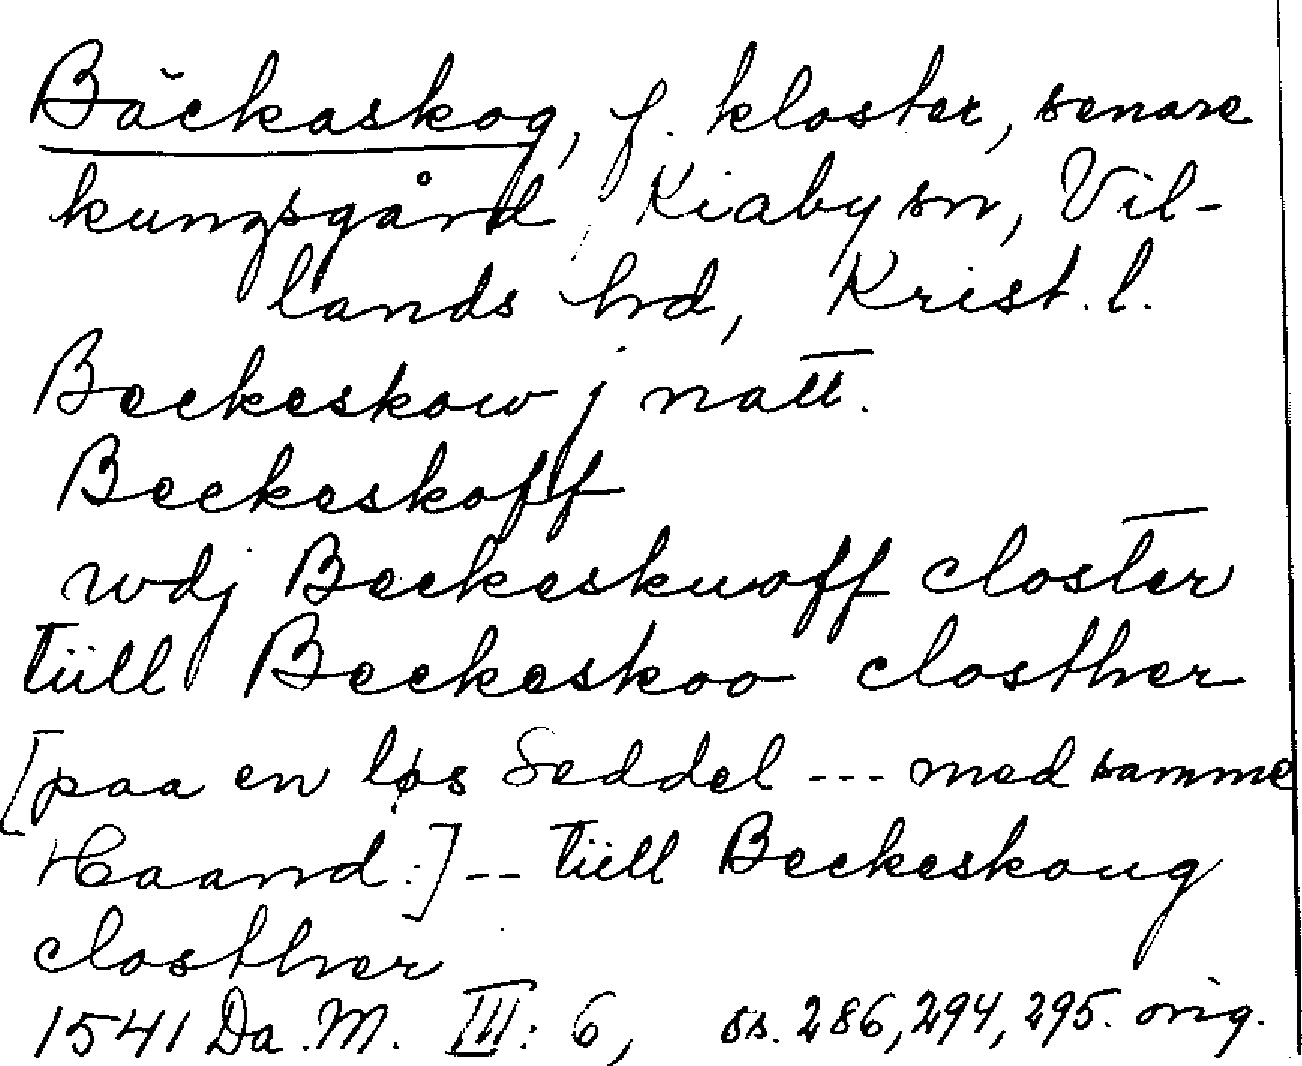 Bäckaskog, f. kloster, senare
kungsgård, Kiaby sn, Vil-
lands hd, Krist. l.
Beckeskow j natt.
Beckeskoff
wdj Beckeskuoff closter
tiill Beckeskoo closther
[paa en løs Seddel --- med samme
Haand:] -- tiill Beckeskoug
closther
1541 Da. M. III: 6, ss. 286, 294, 295. orig.